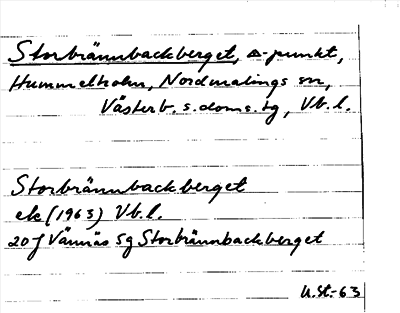 Storbrännbackberget, △-punkt,
Hummelholm, Nordmalings sn,
Västerb. s. doms. tg, Vb. l.
Storbrännbackberget
ek (1963) Vb. l.
20 J Vännäs 5g Storbrännbackberget
U.St.-63